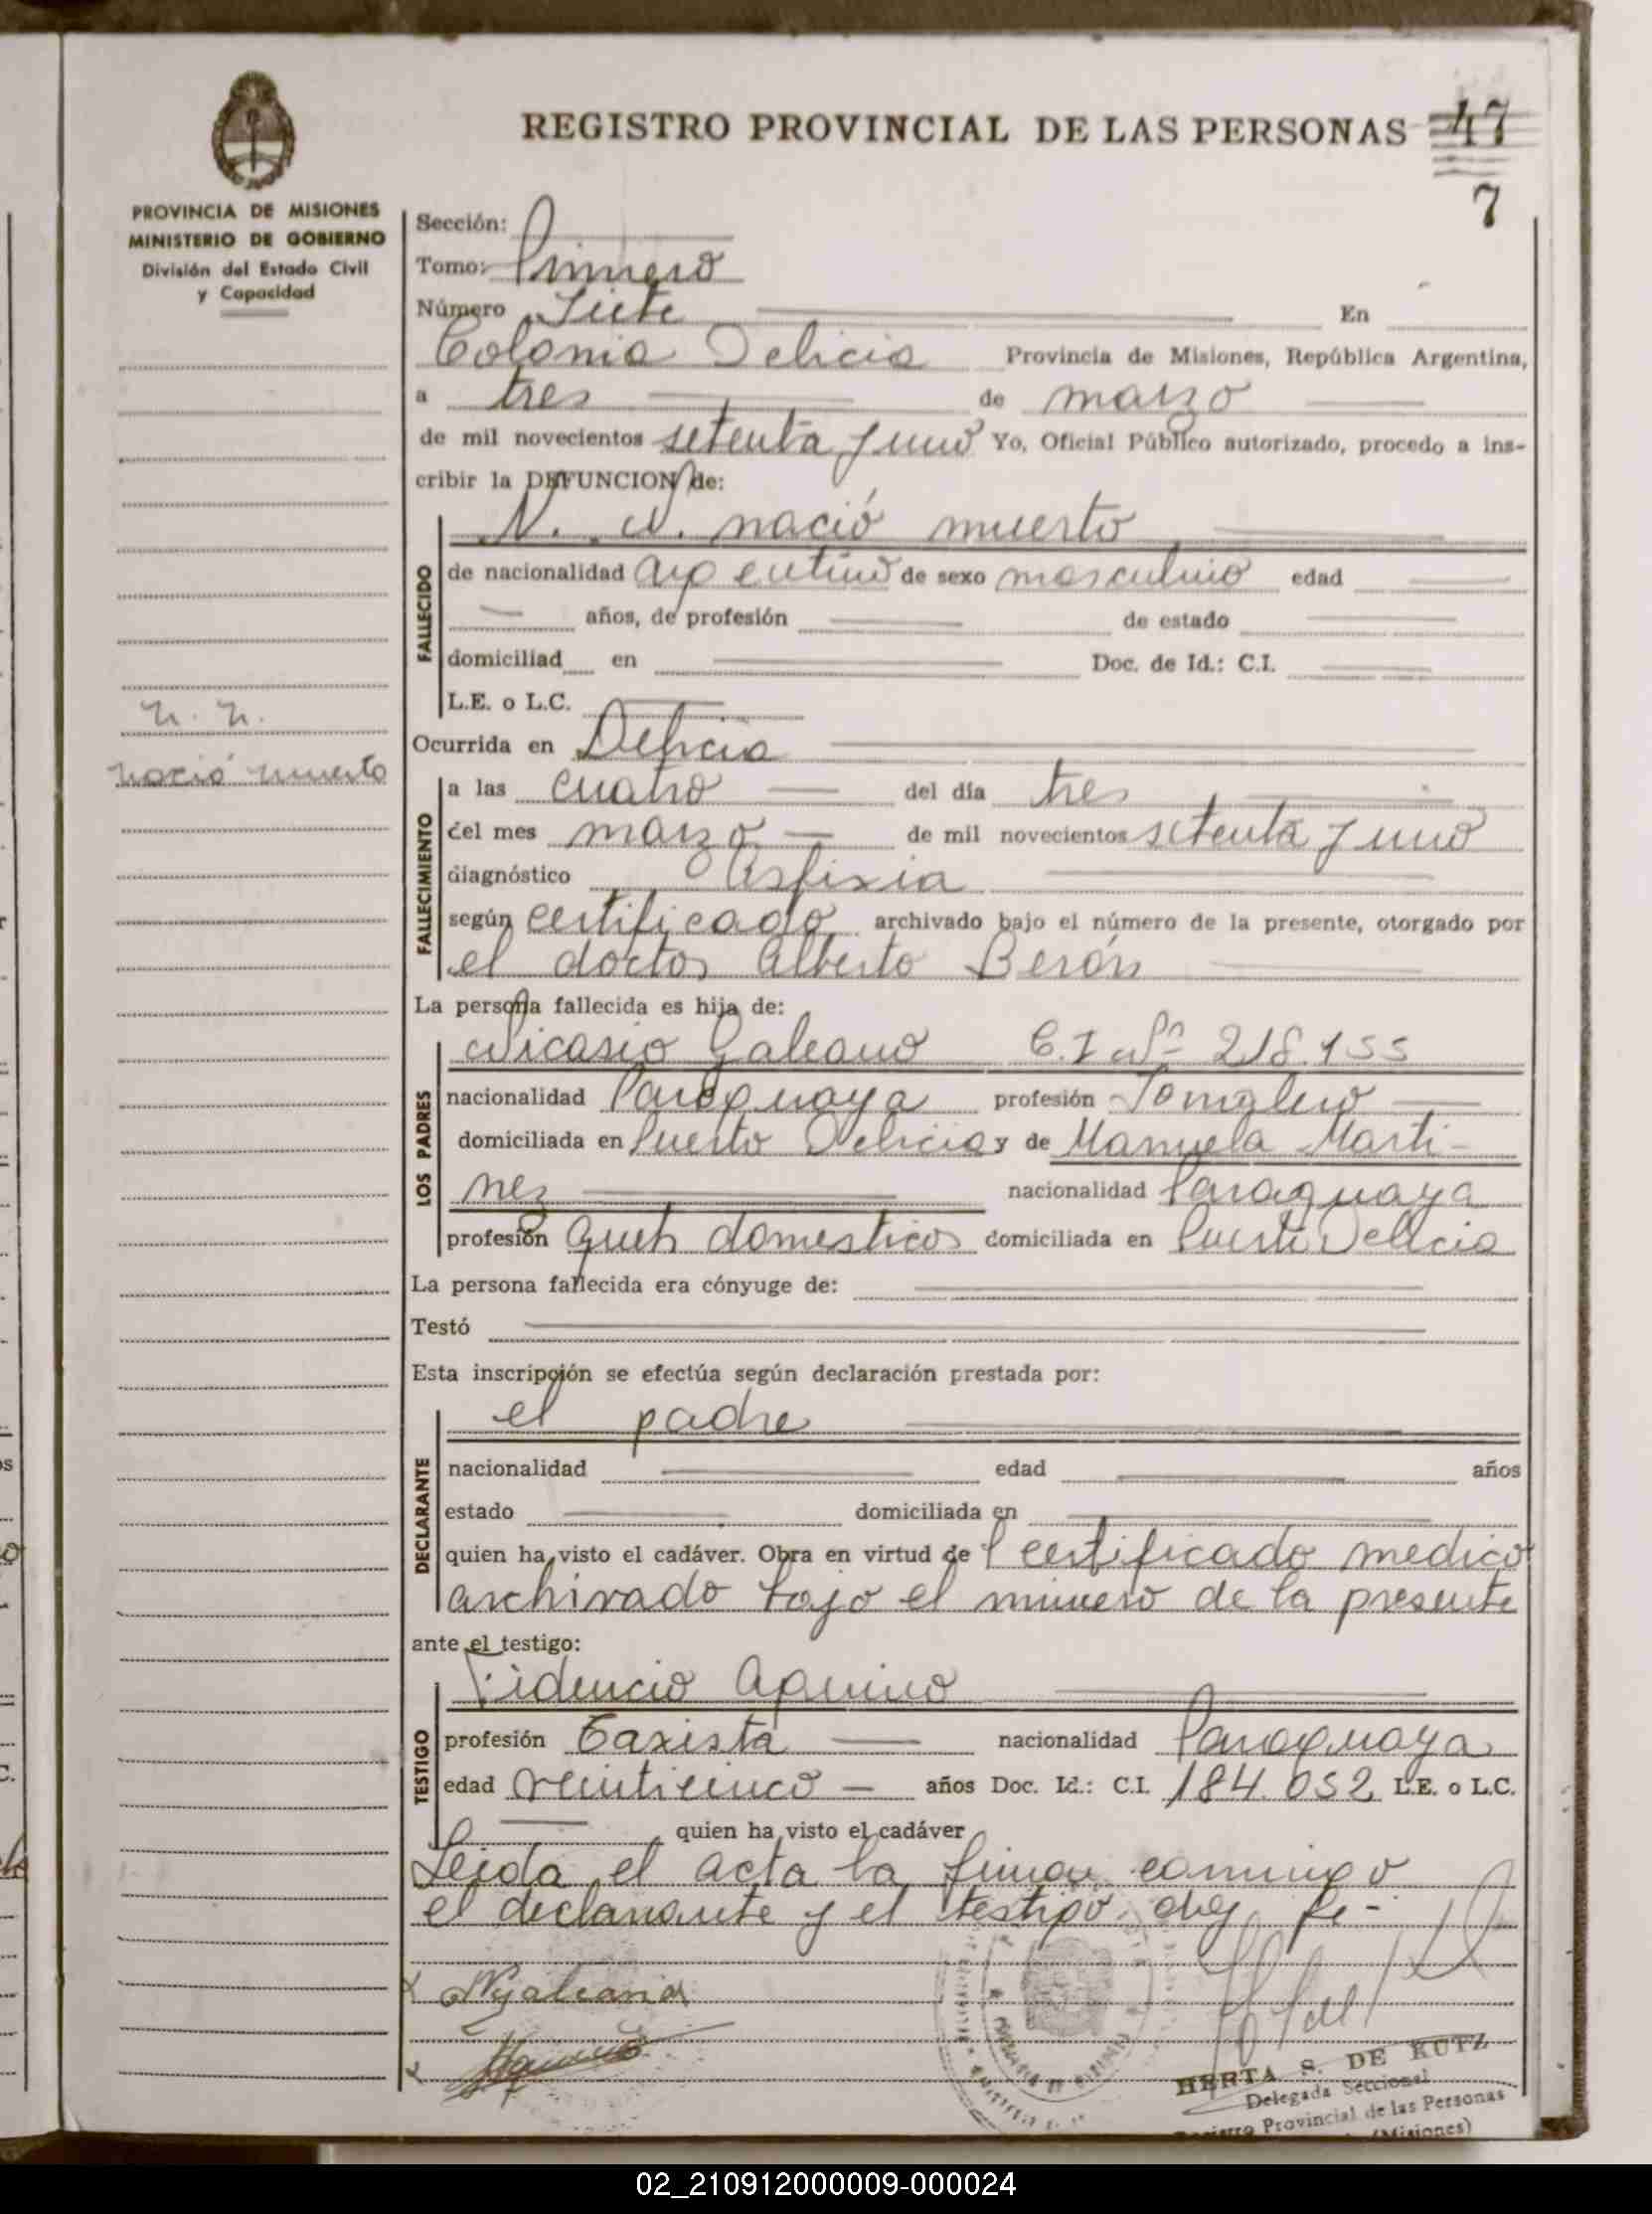 REGISTRO PROVINCIAL DE LAS PERSONAS 47
7
PROVINCIA DE MISIONES
MINISTERIO DE GOBIERNO
División del Estado Civil
y Capacidad
Sección:
Tomo: Primero
Número Siete En
Colonia Delicia Provincia de Misiones, República Argentina,
a tres de marzo
de mil novecientos setenta y uno Yo, Oficial Público autorizado, procedo a ins-
cribir la DEFUNCION de:
N. N. nació muerto
FALLECIDO
de nacionalidad argentino de sexo masculino edad
años, de profesión de estado
domiciliad en Doc. de Id.: C.I.
L.E. o L.C.
n. n.
nació muerto
Ocurrida en Delicia
FALLECIMIENTO
a las cuatro del día tres
del mes marzo de mil novecientos setenta y uno
diagnóstico Asfixia
según certificado archivado bajo el número de la presente, otorgado por
el doctor Alberto Berón
La persona fallecida es hija de:
LOS PADRES
Nicasio Galeano C.I Nº 218.155
nacionalidad Paraguaya profesión Jornalero
domiciliada en Puerto Delicia y de Manuela Marti-
nez nacionalidad Paraguaya
profesión queh domesticos domiciliada en Puerto Delicia
La persona fallecida era cónyuge de:
Testó
Esta inscripción se efectúa según declaración prestada por:
DECLARANTE
el padre
nacionalidad edad años
estado domiciliada en
quien ha visto el cadáver. Obra en virtud de l certificado medico
archivado bajo el número de la presente
ante el testigo:
TESTIGO
Fidencio Aquino
profesión Taxista nacionalidad Paraguaya
edad veinticinco años Doc. Id.: C.I. 184.052 L.E. o L.C.
quien ha visto el cadáver
Leida el acta la firman conmigo
el declarante y el testigo doy fe-
NGaleano
Aquino
HERTA S. DE KUTZ
Delegada Seccional
Registro Provincial de las Personas
(Misiones)
02_210912000009-000024